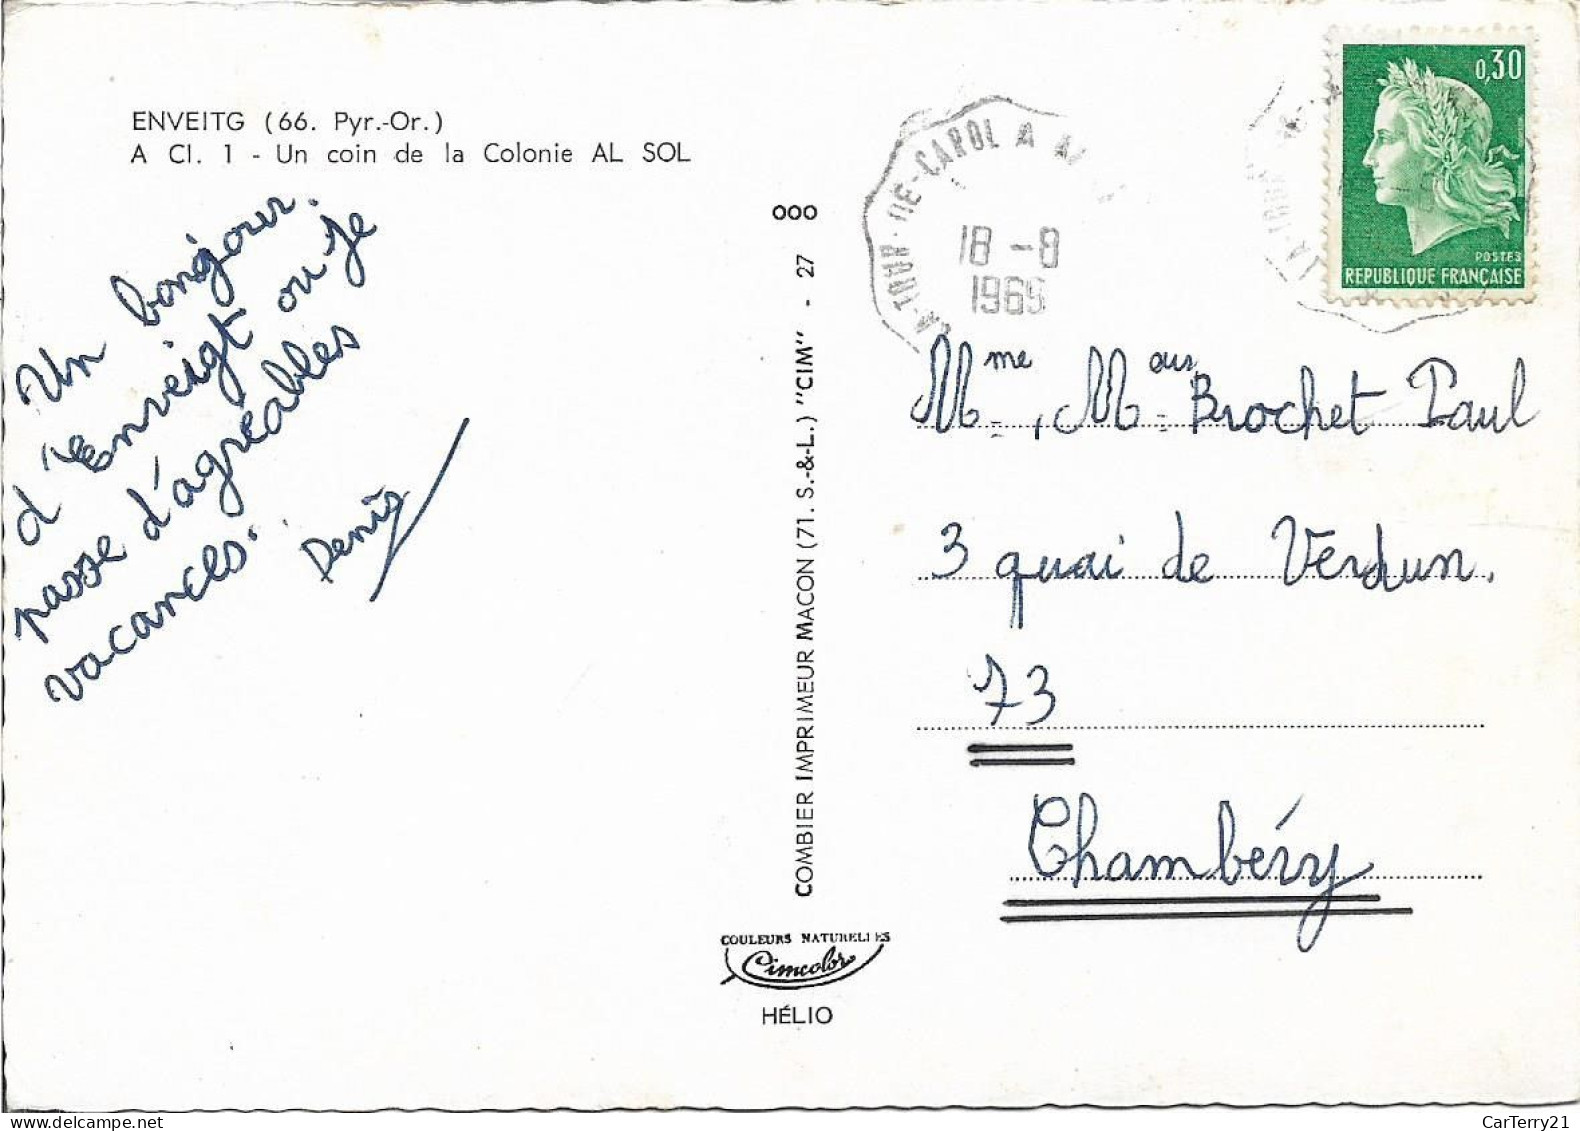 ENVEITG (66. Pyr.-Or.)
A Cl. 1 - Un coin de la Colonie AL SOL
Un bonjour.
d'Enveigt ou je
passe d'agréables
vacances.
Denis
000
COMBIER IMPRIMEUR MACON (71. S.-&-L.) "CIM" - 27
COULEURS NATURELLES
Cimcolor
HÉLIO
LA-TOUR-DE-CAROL A
18 -8
1969
LA-TOUR
0,30
POSTES
REPUBLIQUE FRANÇAISE
Mme, Mous Brochet Paul
3 quai de Verdun.
73
Chambéry
CarTerry21